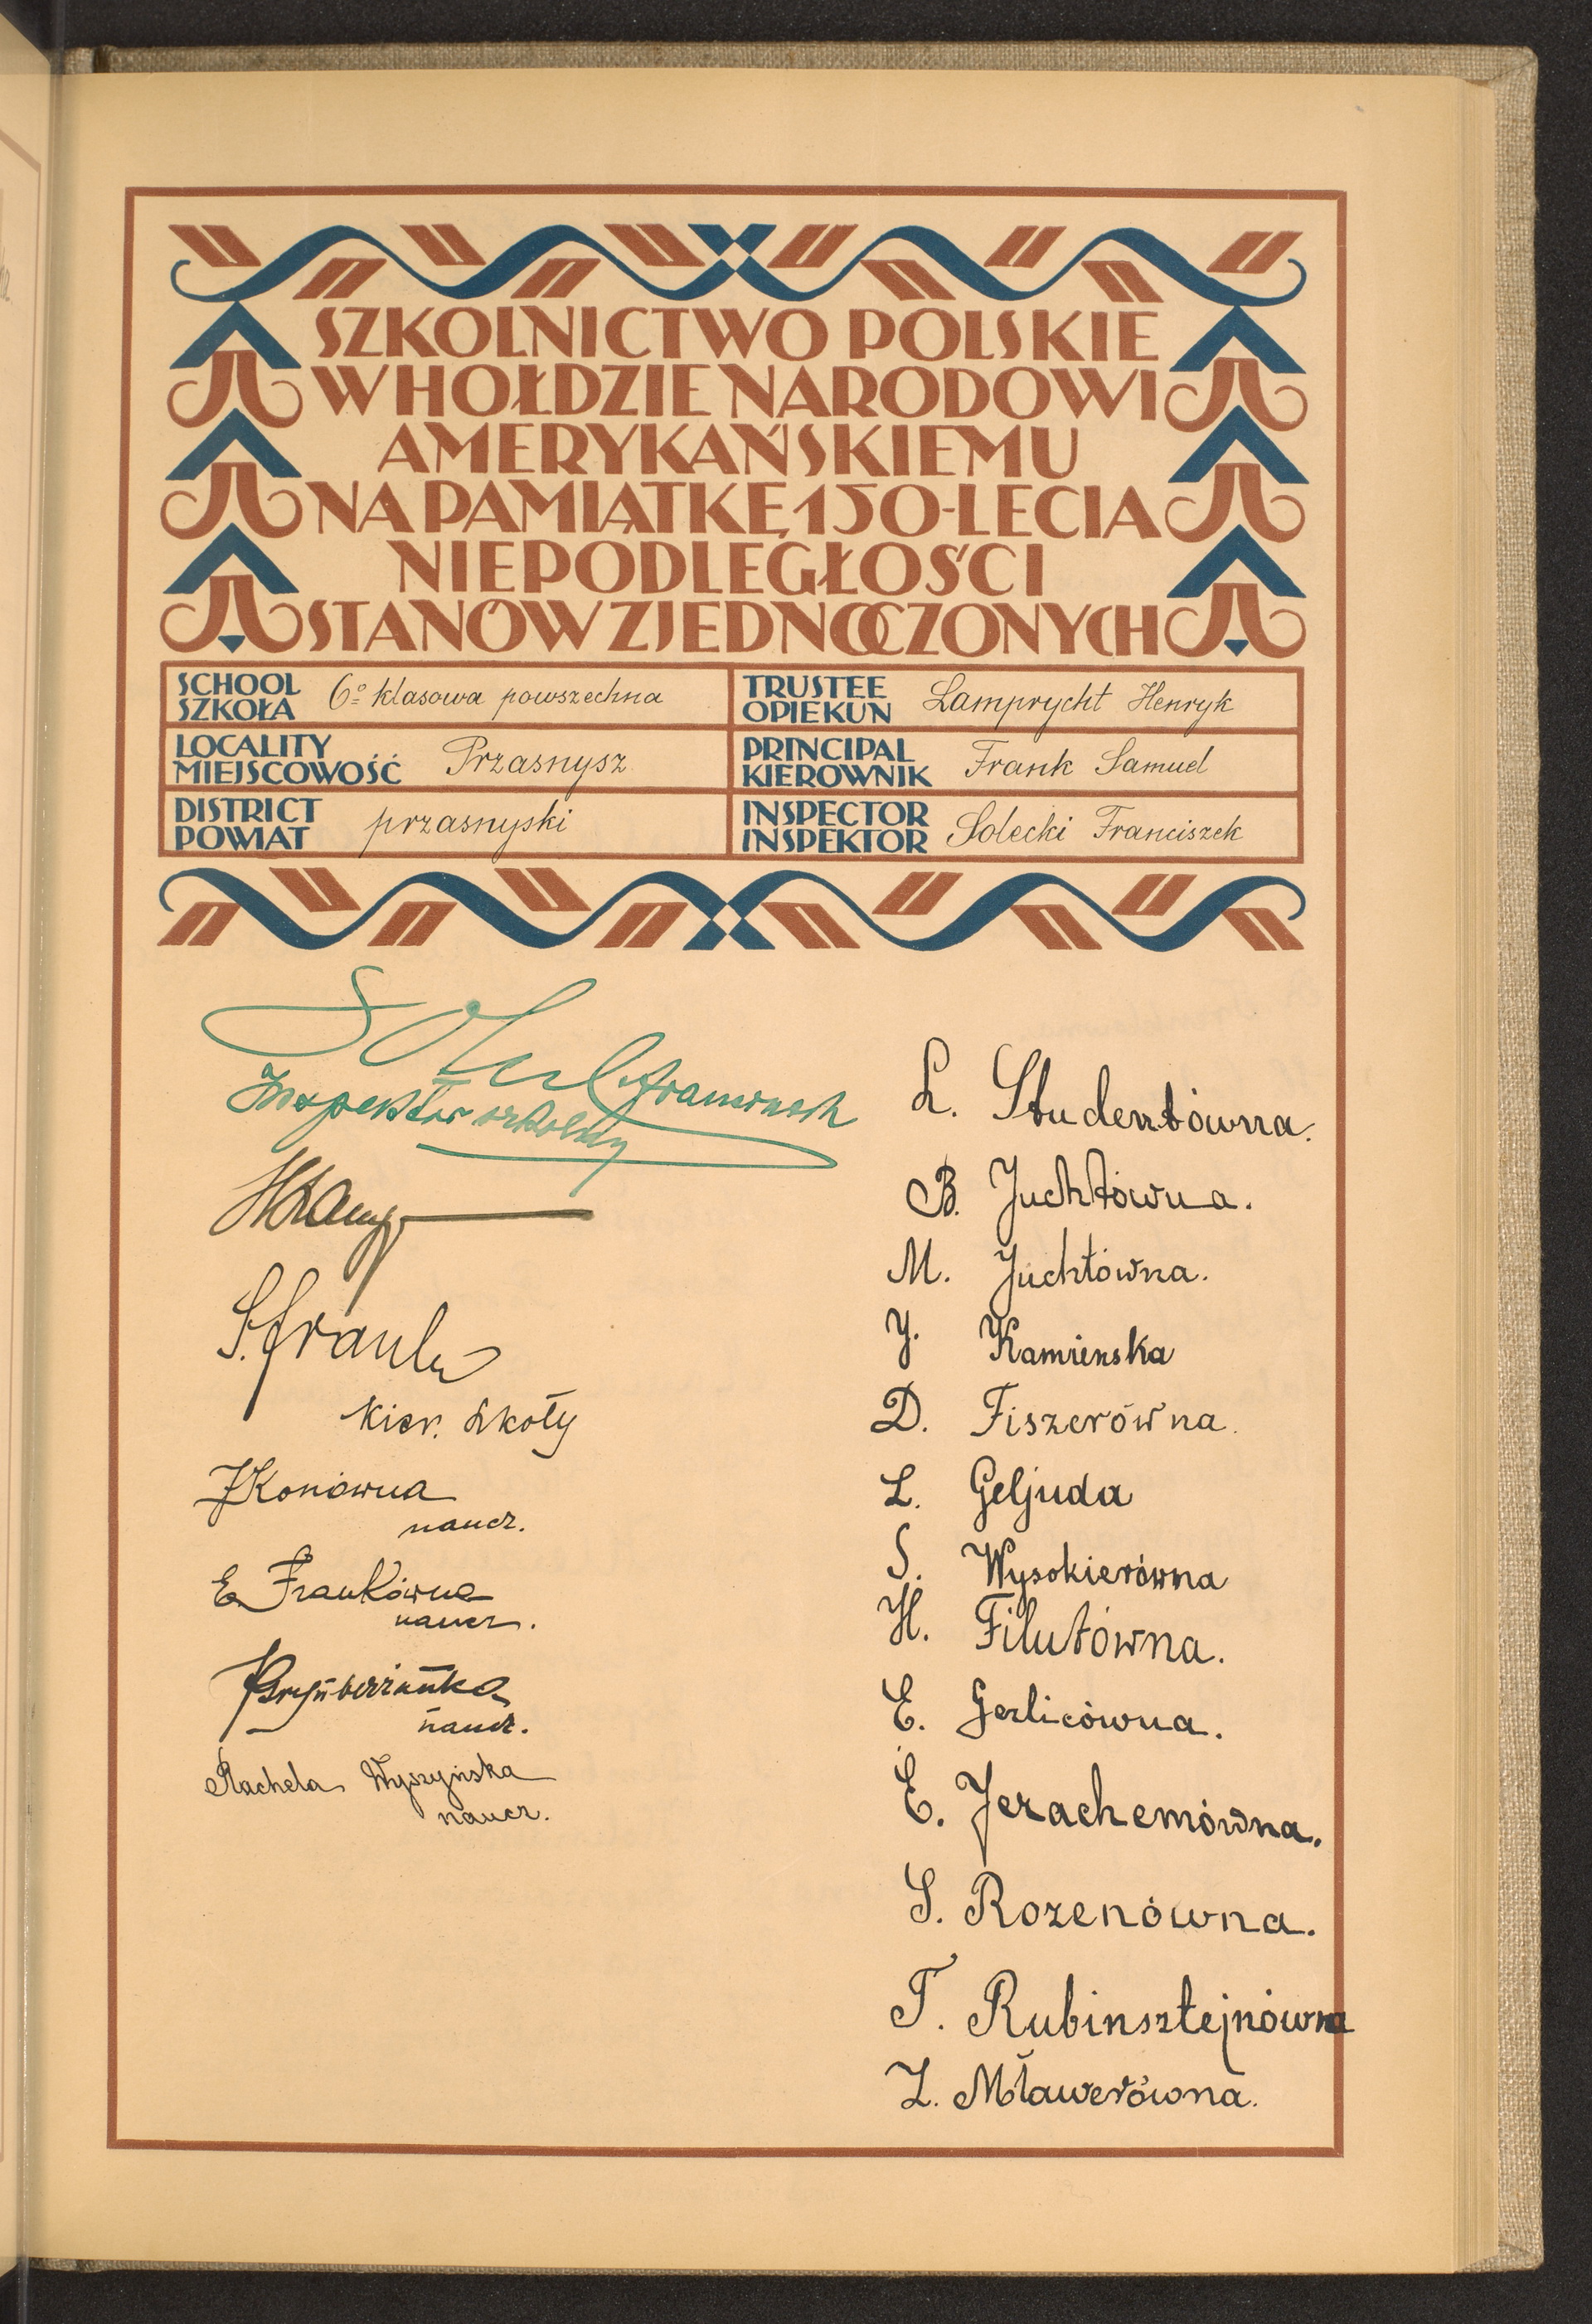 SZKOLNICTWO POLSKIE
W HOŁDZIE NARODOWI
AMERYKAŃSKIEMU
NA PAMIĄTKĘ 150-LECIA
NIEPODLEGŁOŚCI
STANÓW ZJEDNOCZONYCH
SCHOOL
SZKOŁA
6º klasowa powszechna
TRUSTEE
OPIEKUN
Lamprycht Henryk
LOCALITY
MIEJSCOWOŚĆ
Przasnysz
PRINCIPAL
KIEROWNIK
Frank Samuel
DISTRICT
POWIAT
przasnyski
INSPECTOR
INSPEKTOR
Solecki Franciszek
Inspektor szkolny
S. Frank
Kier. szkoły
J Konówna
naucz.
E Frankówna
naucz.
naucz.
Rachela Wyszyńska
naucz.
L. Studentówna.
B. Juchtówna.
M. Juchtówna.
J. Kamienska
D. Fiszerówna.
L. Geljuda
S. Wysokierówna
H. Filutówna.
E. Gerlicówna.
E. Jerachemówna.
S. Rozenówna.
T. Rubinsztejnówna
Z. Mławerówna.